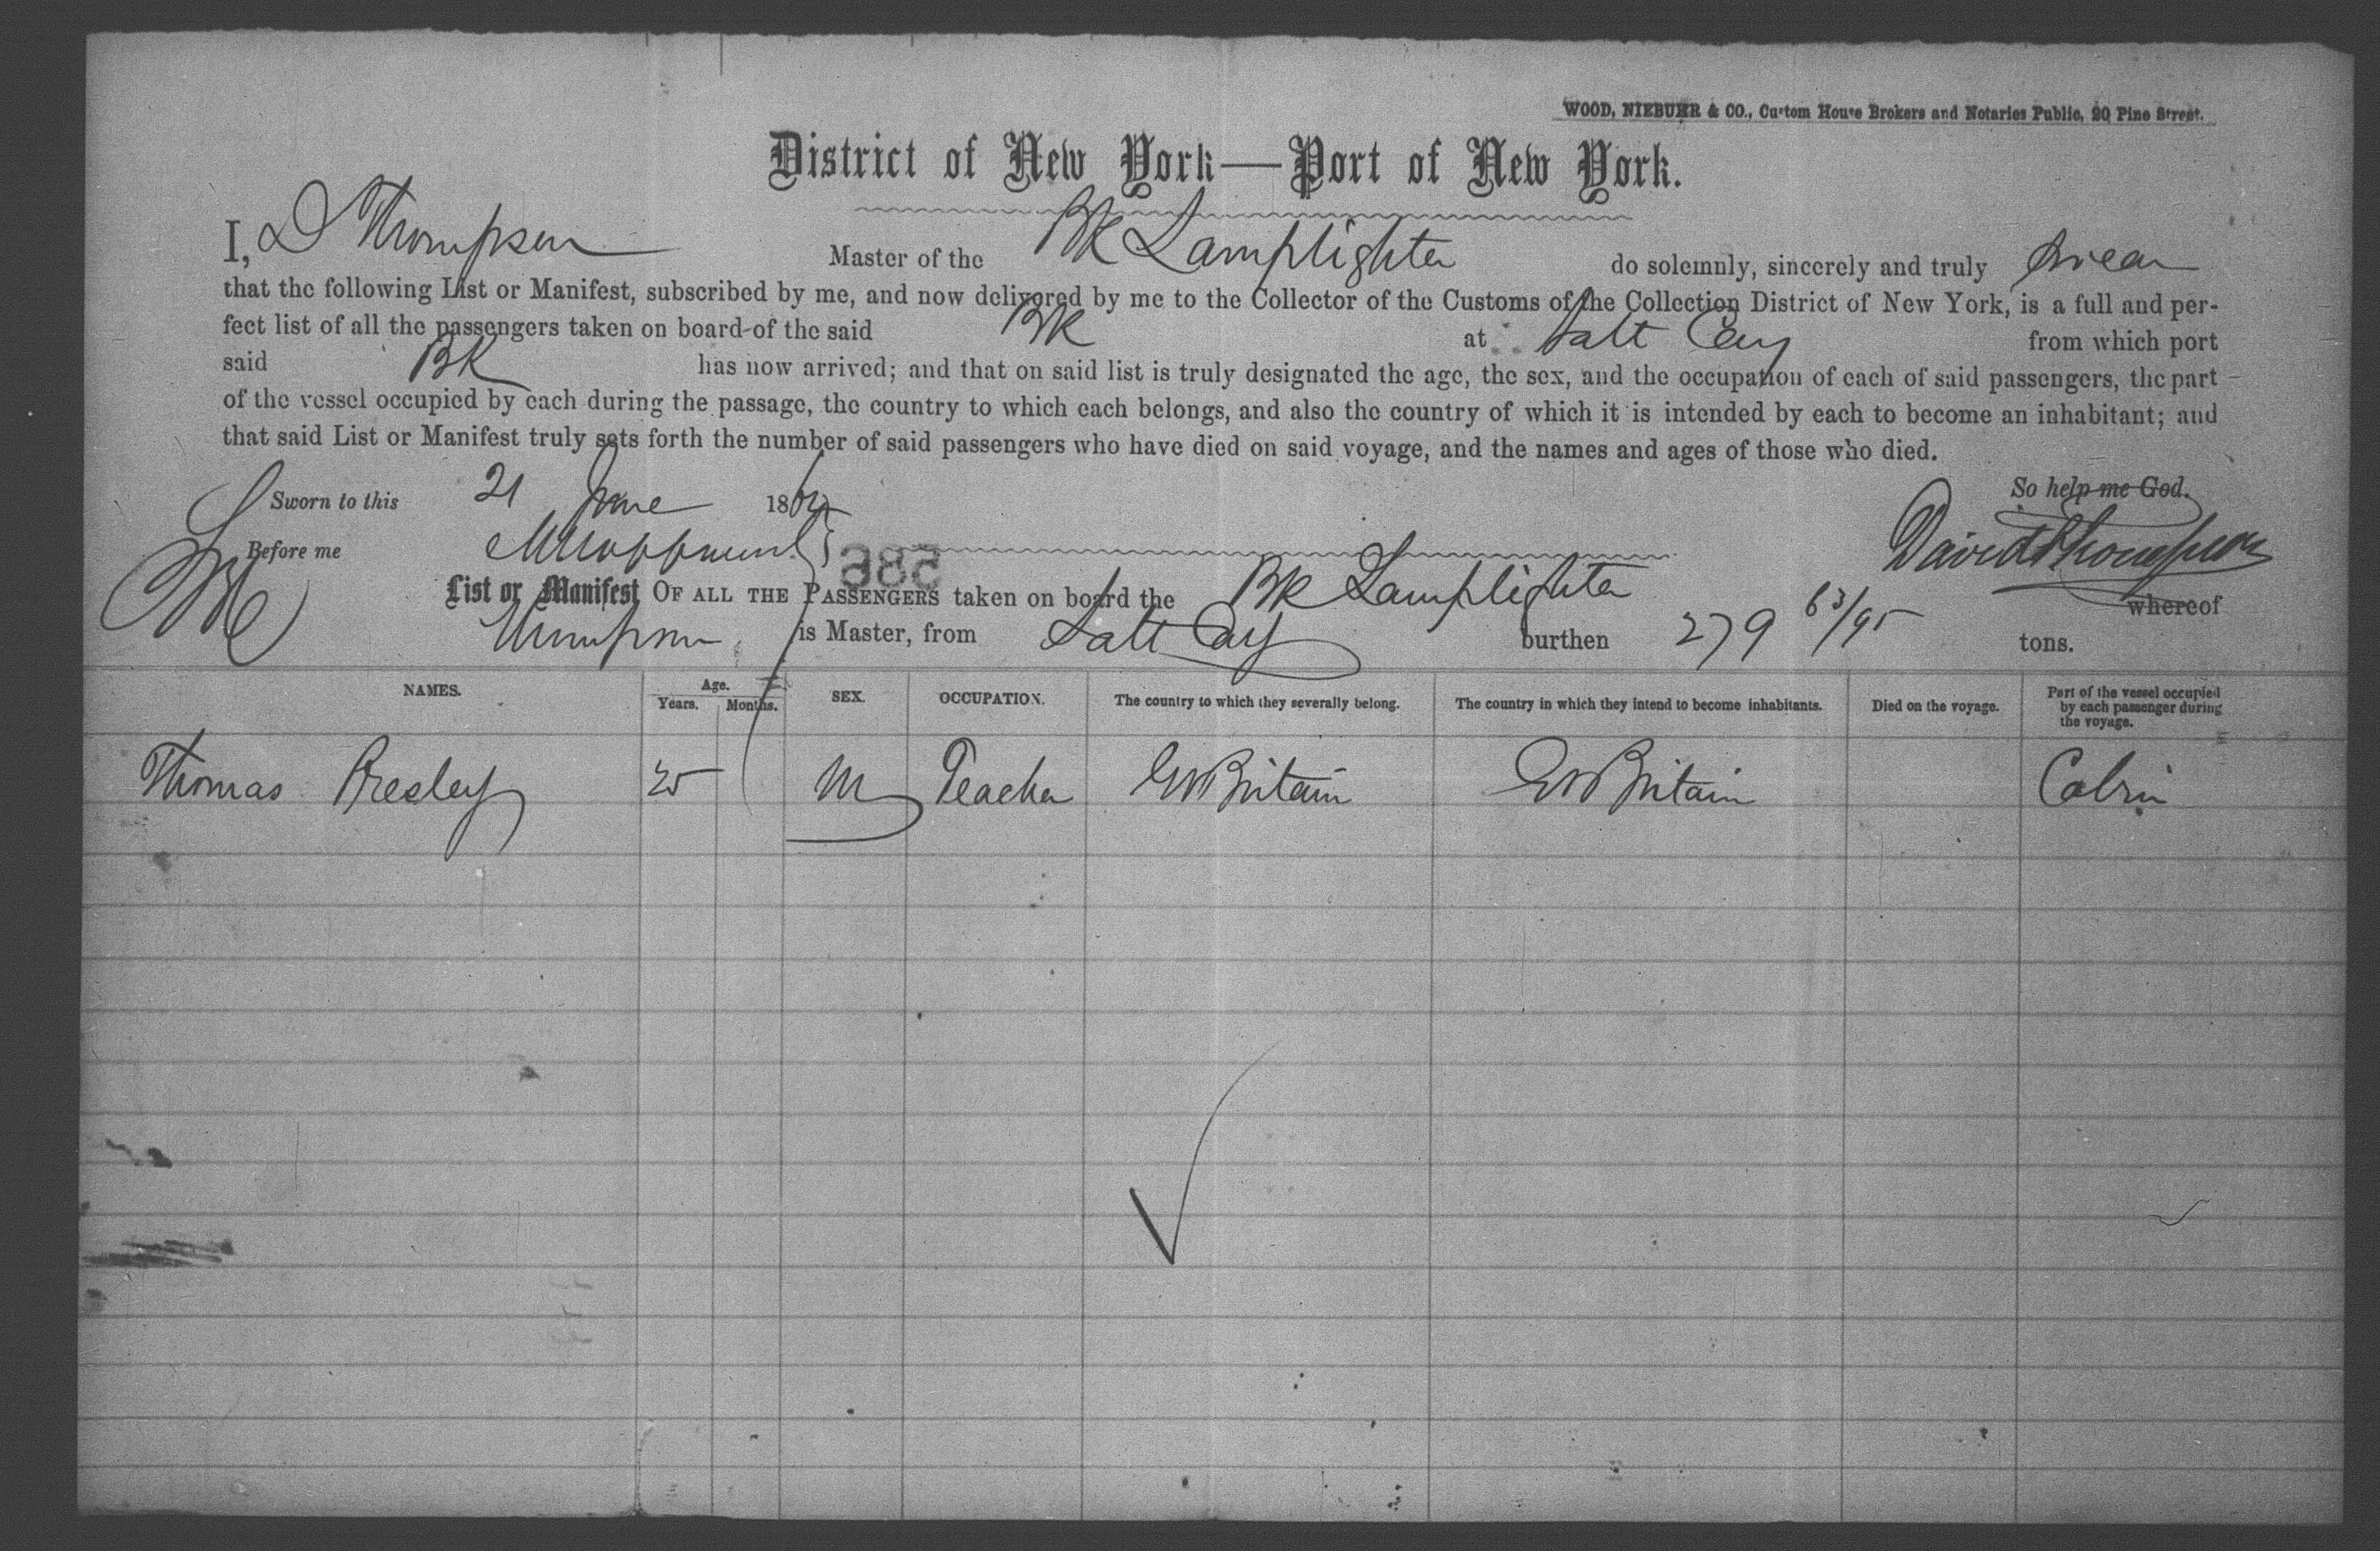 WOOD, NIEBUHR & CO., Custom House Brokers and Notaries Public, 20 Pine Street.
District of New York—Port of New York.
I, D Thompson Master of the Bk Lamplighter do solemnly, sincerely and truly swear
that the following List or Manifest, subscribed by me, and now delivered by me to the Collector of the Customs of the Collection District of New York, is a full and per-
fect list of all the passengers taken on board of the said Bk at Salt Cay from which port
said Bk has now arrived; and that on said list is truly designated the age, the sex, and the occupation of each of said passengers, the part
of the vessel occupied by each during the passage, the country to which each belongs, and also the country of which it is intended by each to become an inhabitant; and
that said List or Manifest truly sets forth the number of said passengers who have died on said voyage, and the names and ages of those who died.
Sworn to this 21 June 186 So help me God.
Before me David Thompson
586
List or Manifest OF ALL THE PASSENGERS taken on board the Bk Lamplighter whereof
Thompson is Master, from Salt Cay burthen 279 63/95 tons.
NAMES. Age. Years. Months. SEX. OCCUPATION. The country to which they severally belong. The country in which they intend to become inhabitants. Died on the voyage. Part of the vessel occupied by each passenger during the voyage.
Thomas Presley 25 M Teacher Gt Britain Gt Britain Cabin